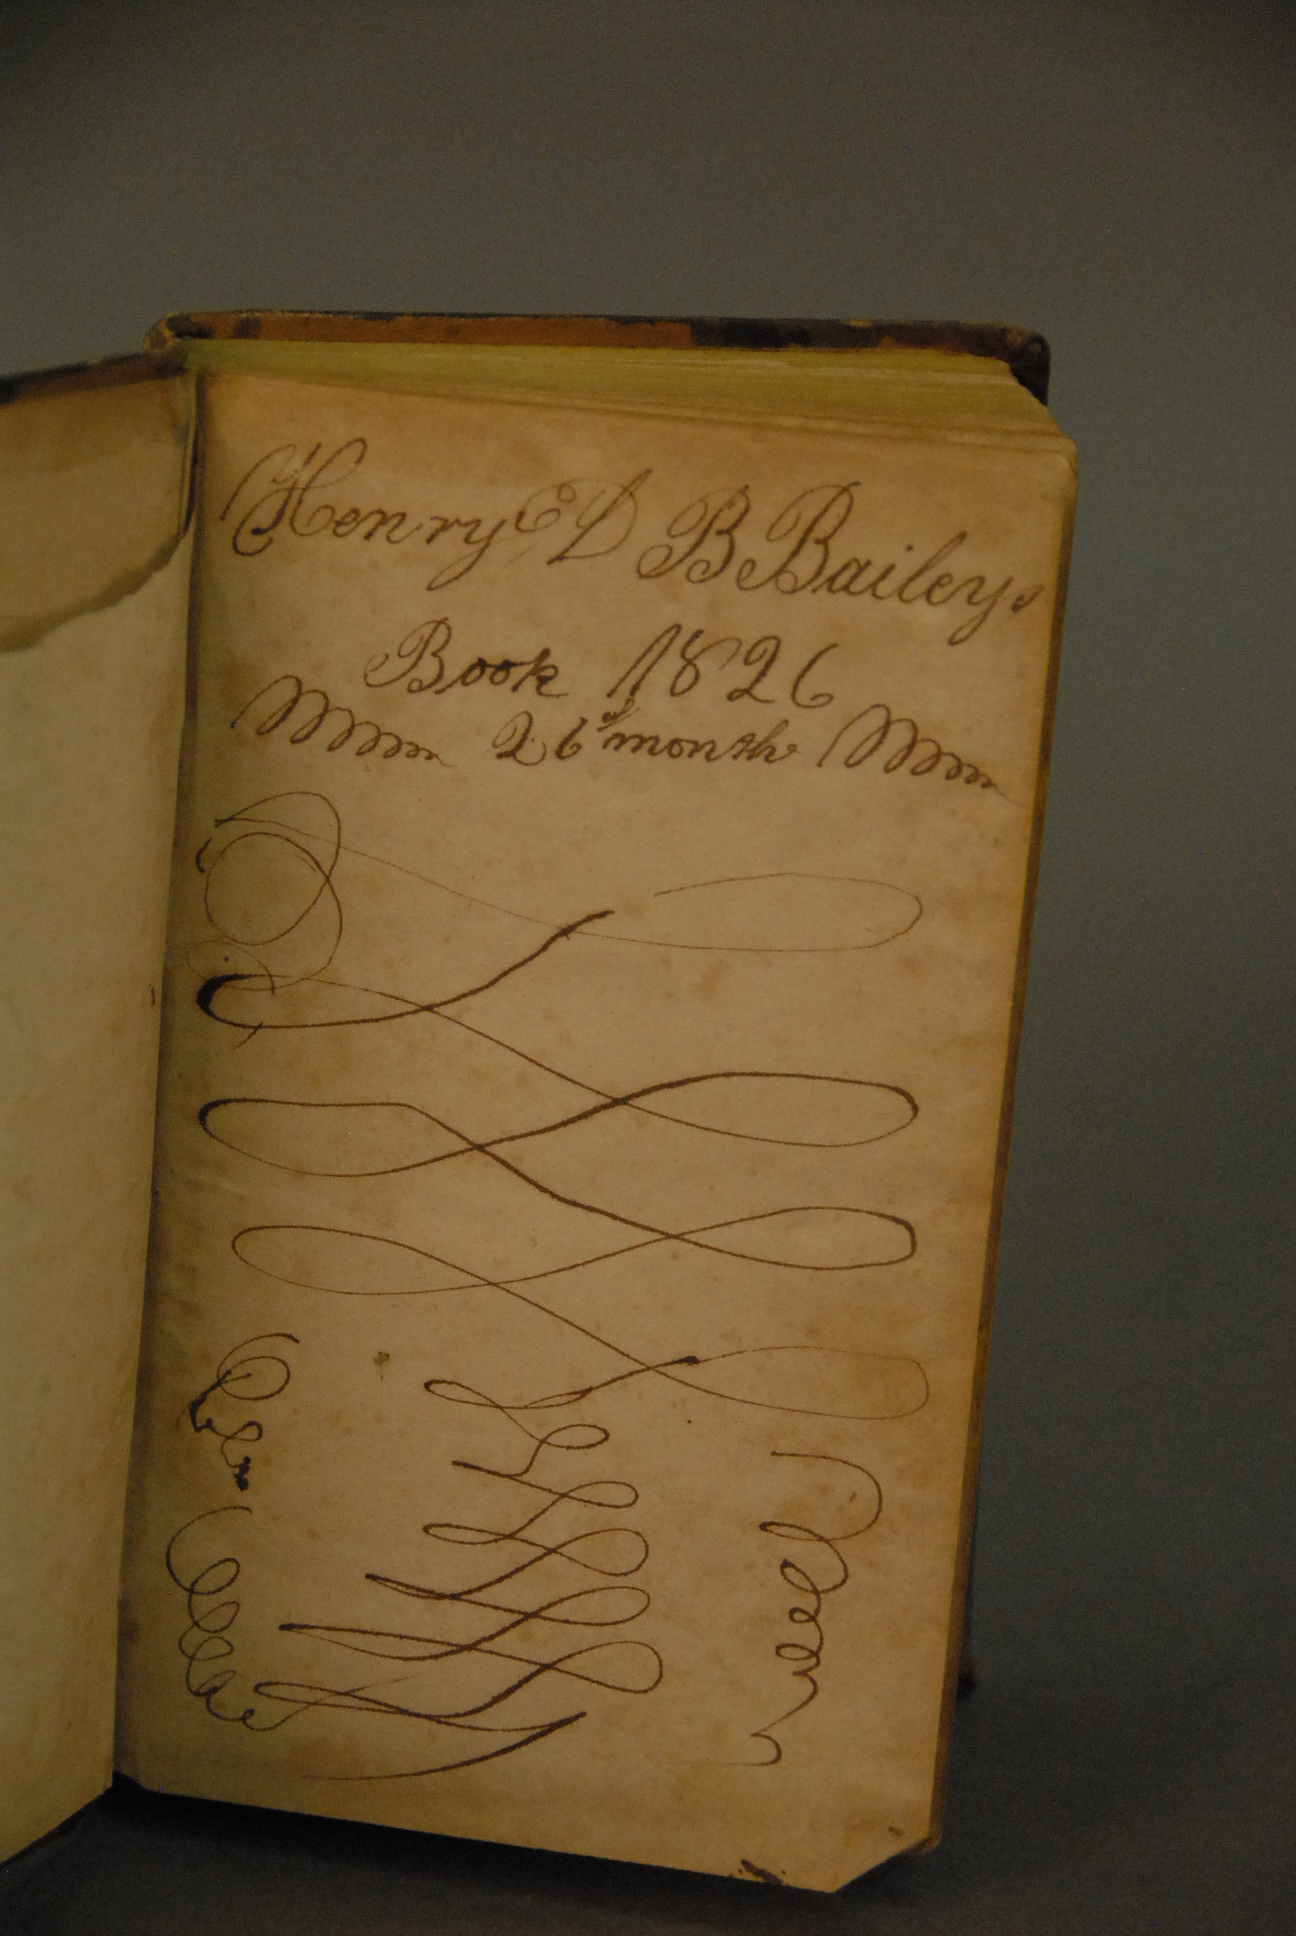 Henry E D B Baileys
Book 1826
26 month